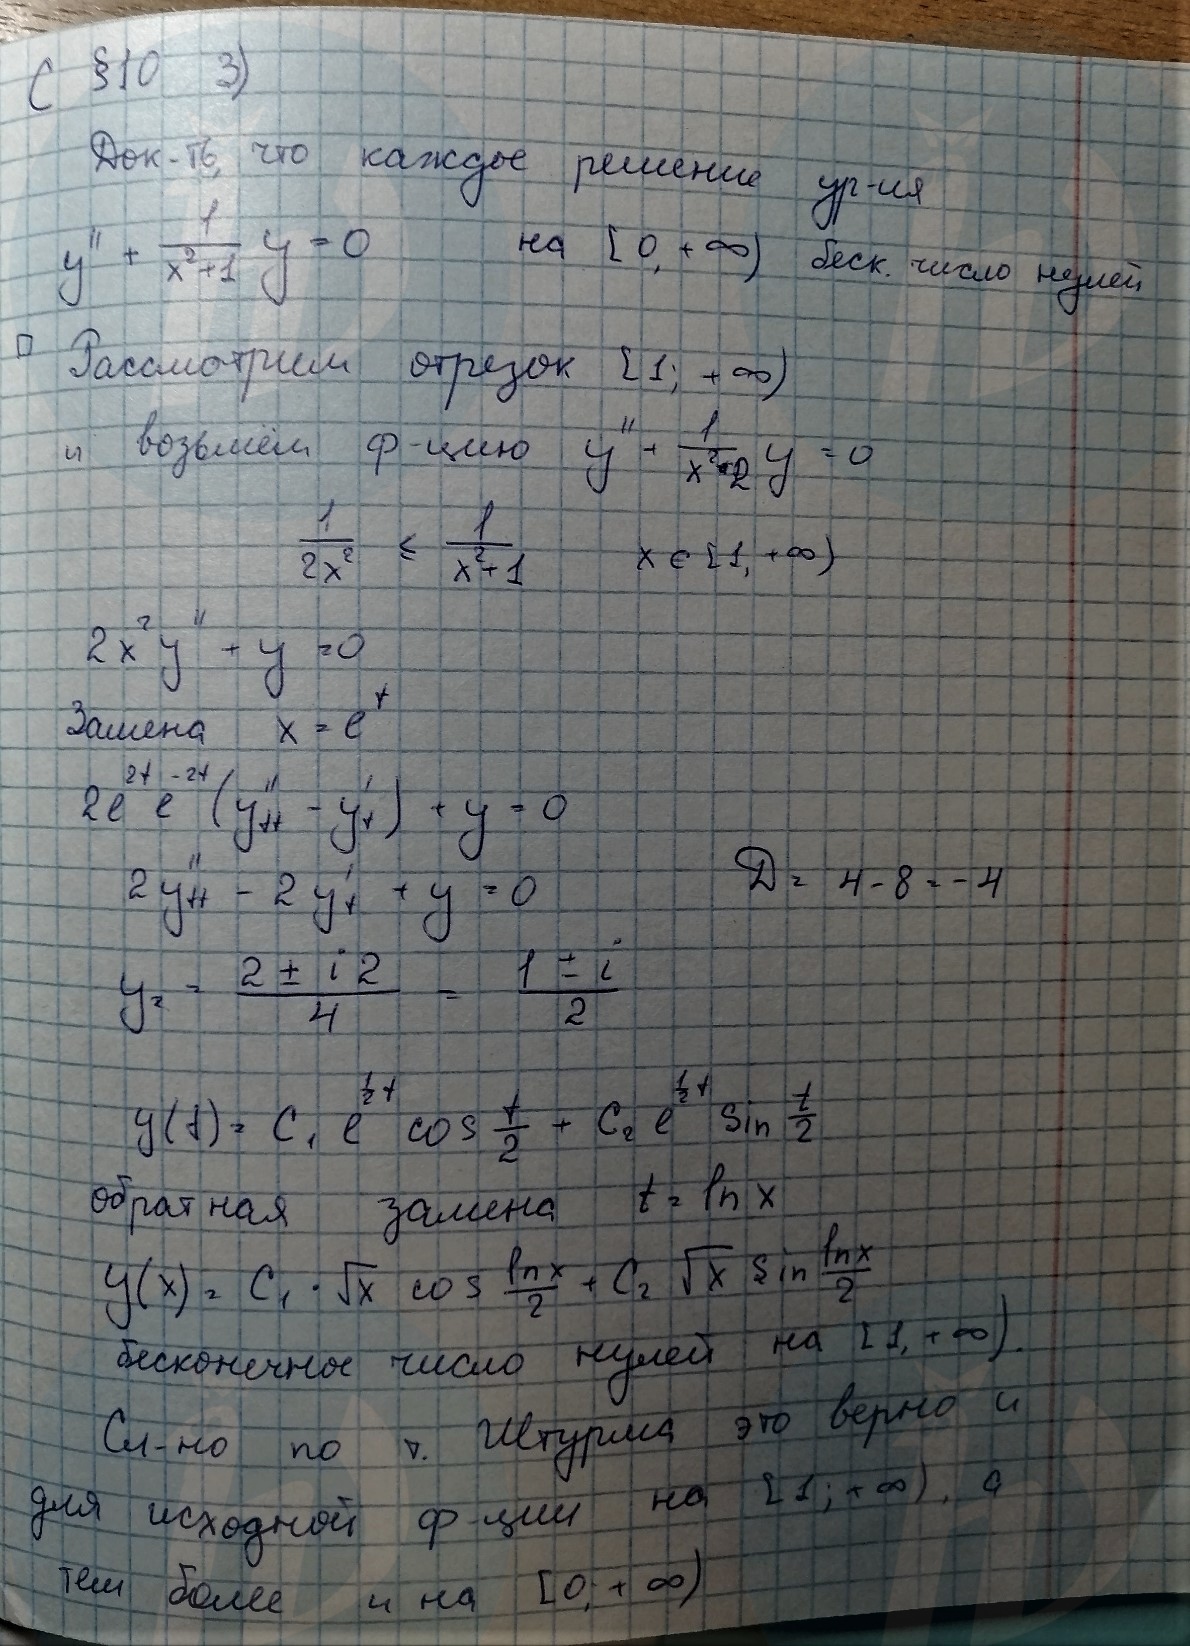 С §10 3)
Док-ть, что каждое решение ур-ия
y'' + 1/(x²+1) y = 0 на [0, +∞) беск. число нулей
□ Рассмотрим отрезок [1; +∞)
и возьмём ф-цию y'' + 1/(x²·2) y = 0
1/(2x²) ≤ 1/(x²+1) x ∈ [1, +∞)
2x²y'' + y = 0
Замена x = e^t
2e^(2t) e^(-2t) (y''_tt - y'_t) + y = 0
2y''_tt - 2y'_t + y = 0 D = 4 - 8 = -4
y₂ = (2 ± i2)/4 = (1 ± i)/2
y(t) = C₁ e^(½t) cos t/2 + C₂ e^(½t) sin t/2
обратная замена t = ln x
y(x) = C₁ · √x cos (ln x)/2 + C₂ √x sin (ln x)/2
бесконечное число нулей на [1, +∞).
Сл-но по т. Штурма это верно и
для исходной ф-ции на [1; +∞), а
тем более и на [0; +∞)